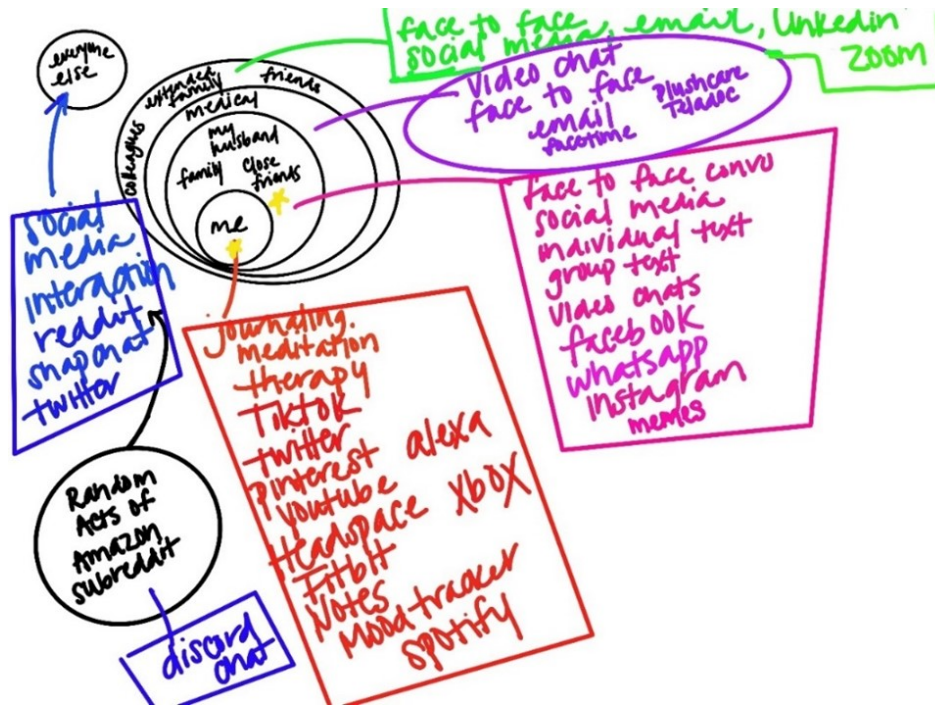 face to face, email, Linkedin
social media, Zoom
everyone
else
extended
family
friends
colleagues
medical
my
husband
family
close
friends
me
video chat
face to face
email
facetime
Plushcare
Teladoc
face to face convo
social media
individual text
group text
video chats
facebook
whatsapp
Instagram
memes
social
media
interaction
reddit
snapchat
twitter
journaling.
meditation
therapy
TikTok
twitter
pinterest alexa
youtube
Headspace Xbox
Fitbit
Notes
Mood tracker
spotify
Random
Acts of
Amazon
subreddit
discord
chat